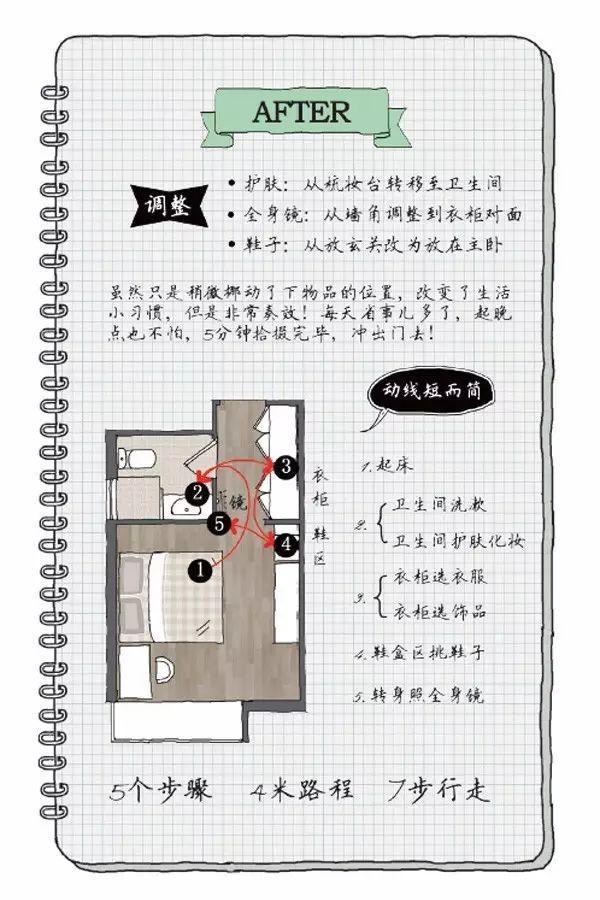 AFTER
调整
• 护肤：从梳妆台转移至卫生间
• 全身镜：从墙角调整到衣柜对面
• 鞋子：从放玄关改为放在主卧
虽然只是稍微挪动了下物品的位置，改变了生活
小习惯，但是非常奏效！每天省事儿多了，起晚
点也不怕，5分钟拾掇完毕，冲出门去！
动线短而简
1.起床
2.
卫生间洗漱
卫生间护肤化妆
3.
衣柜选衣服
衣柜选饰品
4.鞋盒区挑鞋子
5.转身照全身镜
3
衣柜
2
镜
5
鞋区
4
1
5个步骤 4米路程 7步行走